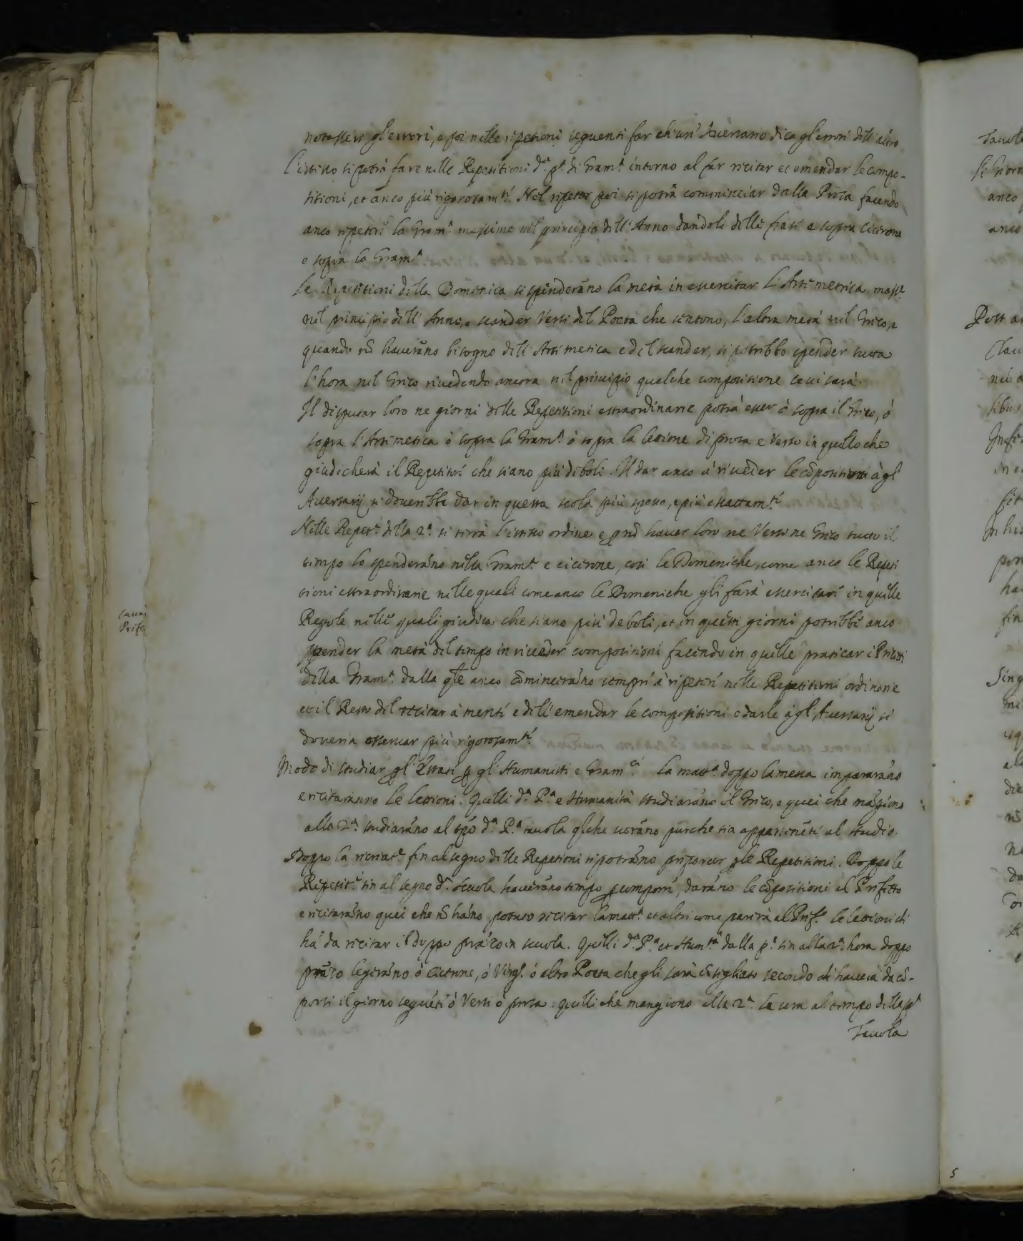 notassero gl'errori, e poi nelle ripetioni seguenti far ch'un' Aversario dica gl'errori dell'altro
L'istesso si potrà fare nelle Repetitioni d.ª p.ª di Gram.ª intorno al far recitar et emendar le compo-
sitioni, et anco più rigorosam.te Nel ripeter poi si potrà cominciar dalla Prosa facendo
anco ripeter la Gram.ª massime nel principio dell'Anno dandoli delle frasi e sopra Cicerone
e sopra la Gram.ª
Le Repetitioni della Domenica si spenderano la metà in essercitar L'Aritmetica, mass.e
nel principio dell'Anno, e scander Versi del Poeta che sentono, L'altra metà nel Greco, e
quando nõ haverãno bisogno dell'Aritmetica e del scander, si potrebbe spender tutta
l'hora nel Greco rivedendo ancora nel principio qualche compositione se vi sarà.
Il disputar loro ne giorni delle Repetitioni estraordinarie potrà esser ò sopra il Greco, ò
sopra l'Aritmetica ò sopra la Gram.ª ò sopra la lettione di prosa e Verso in quello che
giudicherà il Repetitor che siano più deboli. Il dar anco à riveder le cõpositioni à gl
Aversarij si dovrebbe dar in questa scola più spesso, e più esattam.te
Nelle Repet.ni della 2.ª si terrà l'istesso ordine, e p nõ haver loro ne Versi ne Greco tutto il
tempo lo spenderãno nella Gram.ª e Cicerone, così le Domeniche, come anco le Repeti
tioni estraordinarie nelle quali come anco le Domeniche gli farà essercitare in quelle
Regole nelle quali giudica che siano più deboli, et in questi giorni potrebbe anco
spender la metà del tempo in riveder compositioni facendo in quelle praticar i Precetti
della Gram.ª dalla q̃le anco cõminciarãno sempre à ripeter nelle Repetitioni ordinarie
et il Resto del recitar à mente e dell'emendar le compositioni e darle à gl'Aversarij si
doveria osservar più rigorosam.te
Modo di studiar gl'Estati p gl'Humanisti e Gram.ci La matt.ª doppo la messa impararãno
e recitaranno le lettioni. Quelli d.ª P.ª e Humanità studiarãno il Greco, e quei che mãgiono
alla 2.ª studiarãno al tẽpo d.ª P.ª tavola q̃lche vorãno purche sia appartenẽte al studio
Doppo la ricreat.e fin al segno delle Repetioni si potrãno preparar p le Repetitioni. Doppo le
Repetit.ni fin al segno d.ª Scuola haverãno tempo p comporre, darãno le cõpositioni al Prefetto
e recitarãno quei che nõ hãno potuto recitar la matt.ª et altri come parirà al Pref.º le lettioni ch
hã da recitar il doppo prãzo in scuola. Quelli d.ª P.ª et Hum.tà dalla p.ª sin alla hora doppo
prãzo legerãno ò Cicerone, ò Virg.º ò altro Poeta che gli sarà cõsigliato secondo ch haverà da cõ-
porsi il giorno seguẽte ò Versi ò prosa: quelli che mangiono alla 2.ª la cera al tempo della p.ª
Tavola